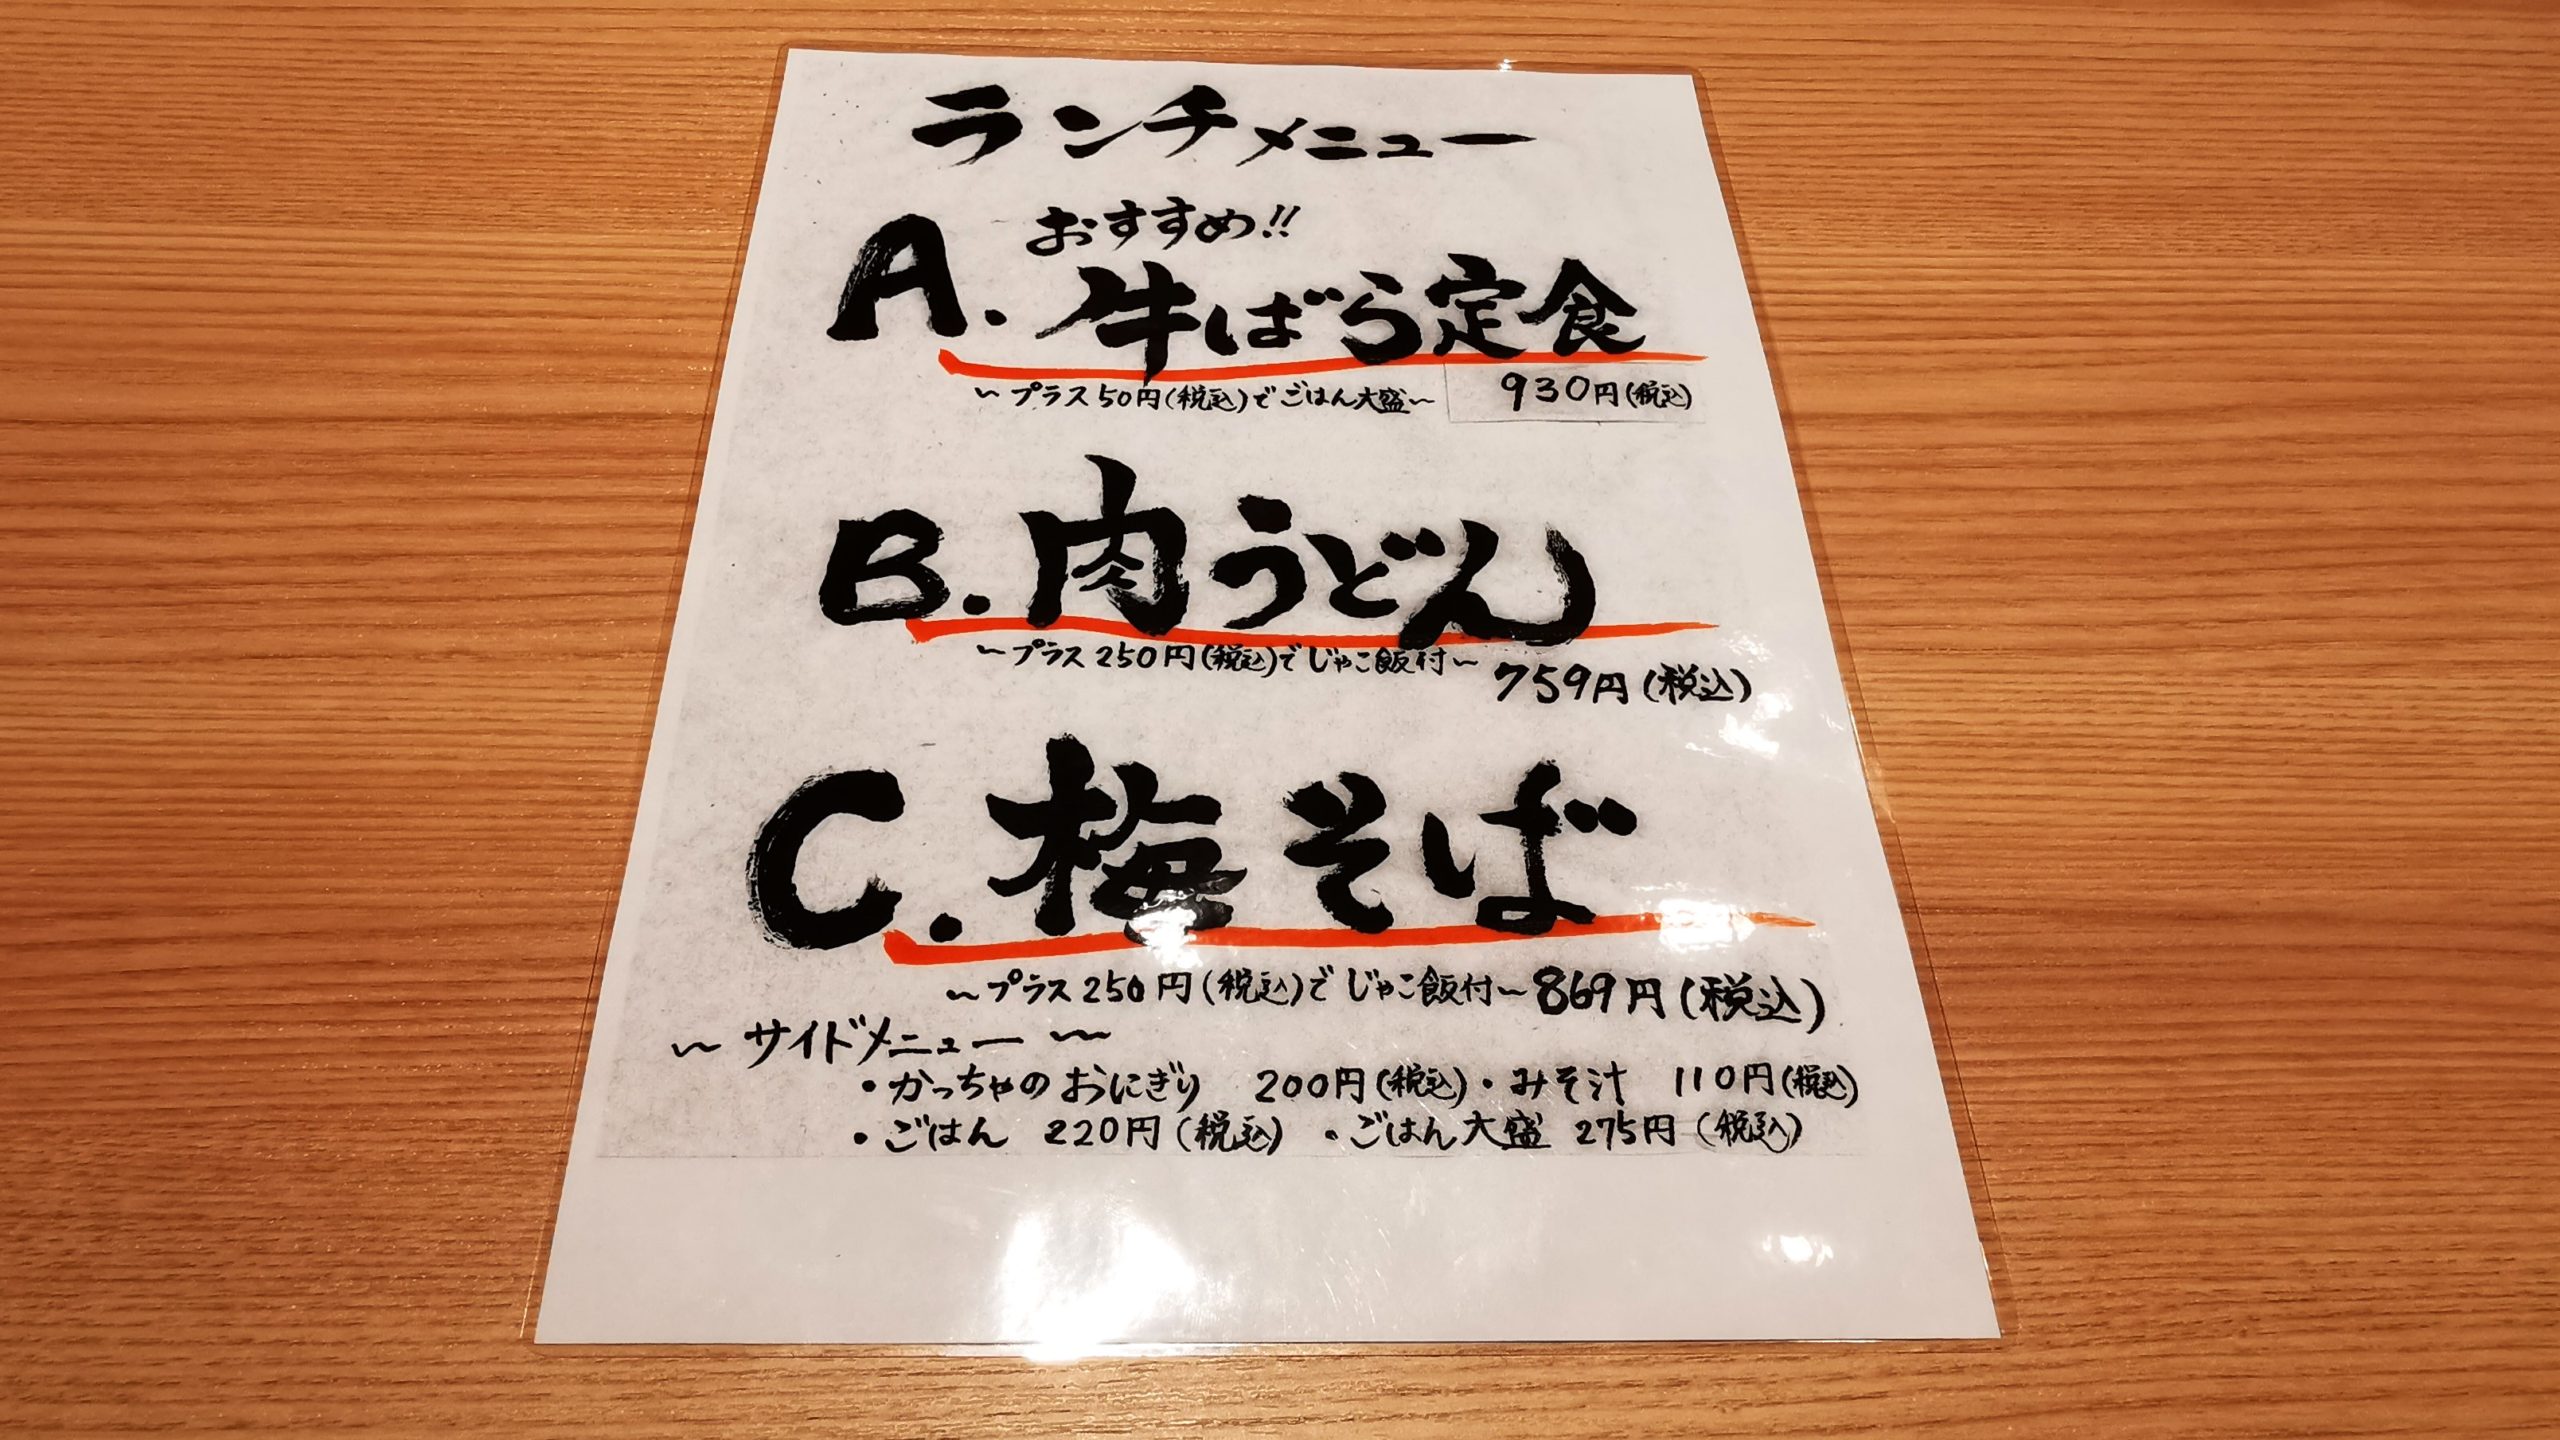 ランチメニュー
おすすめ!!
A. 牛ばら定食
~プラス50円(税込)でごはん大盛~ 930円(税込)
B. 肉うどん
~プラス250円(税込)でじゃこ飯付~ 759円(税込)
C. 梅そば
~プラス250円(税込)でじゃこ飯付~ 869円(税込)
~サイドメニュー~
・かっちゃのおにぎり 200円(税込)・みそ汁 110円(税込)
・ごはん 220円(税込) ・ごはん大盛 275円(税込)